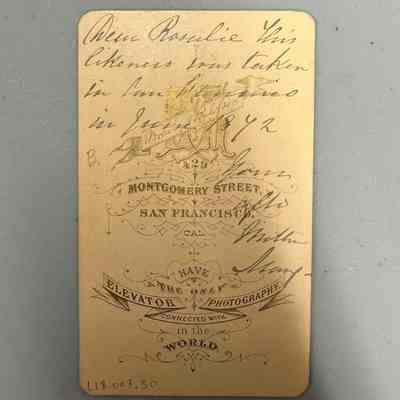 Dear Rosalie This
likeness was taken
in San
in June 1872
B.
429
MONTGOMERY STREET,
SAN FRANCISCO,
CAL.
Your
affte
Mother
Mary
HAVE
THE ONLY
ELEVATOR PHOTOGRAPHY
CONNECTED WITH
in the
WORLD.
118.003.50